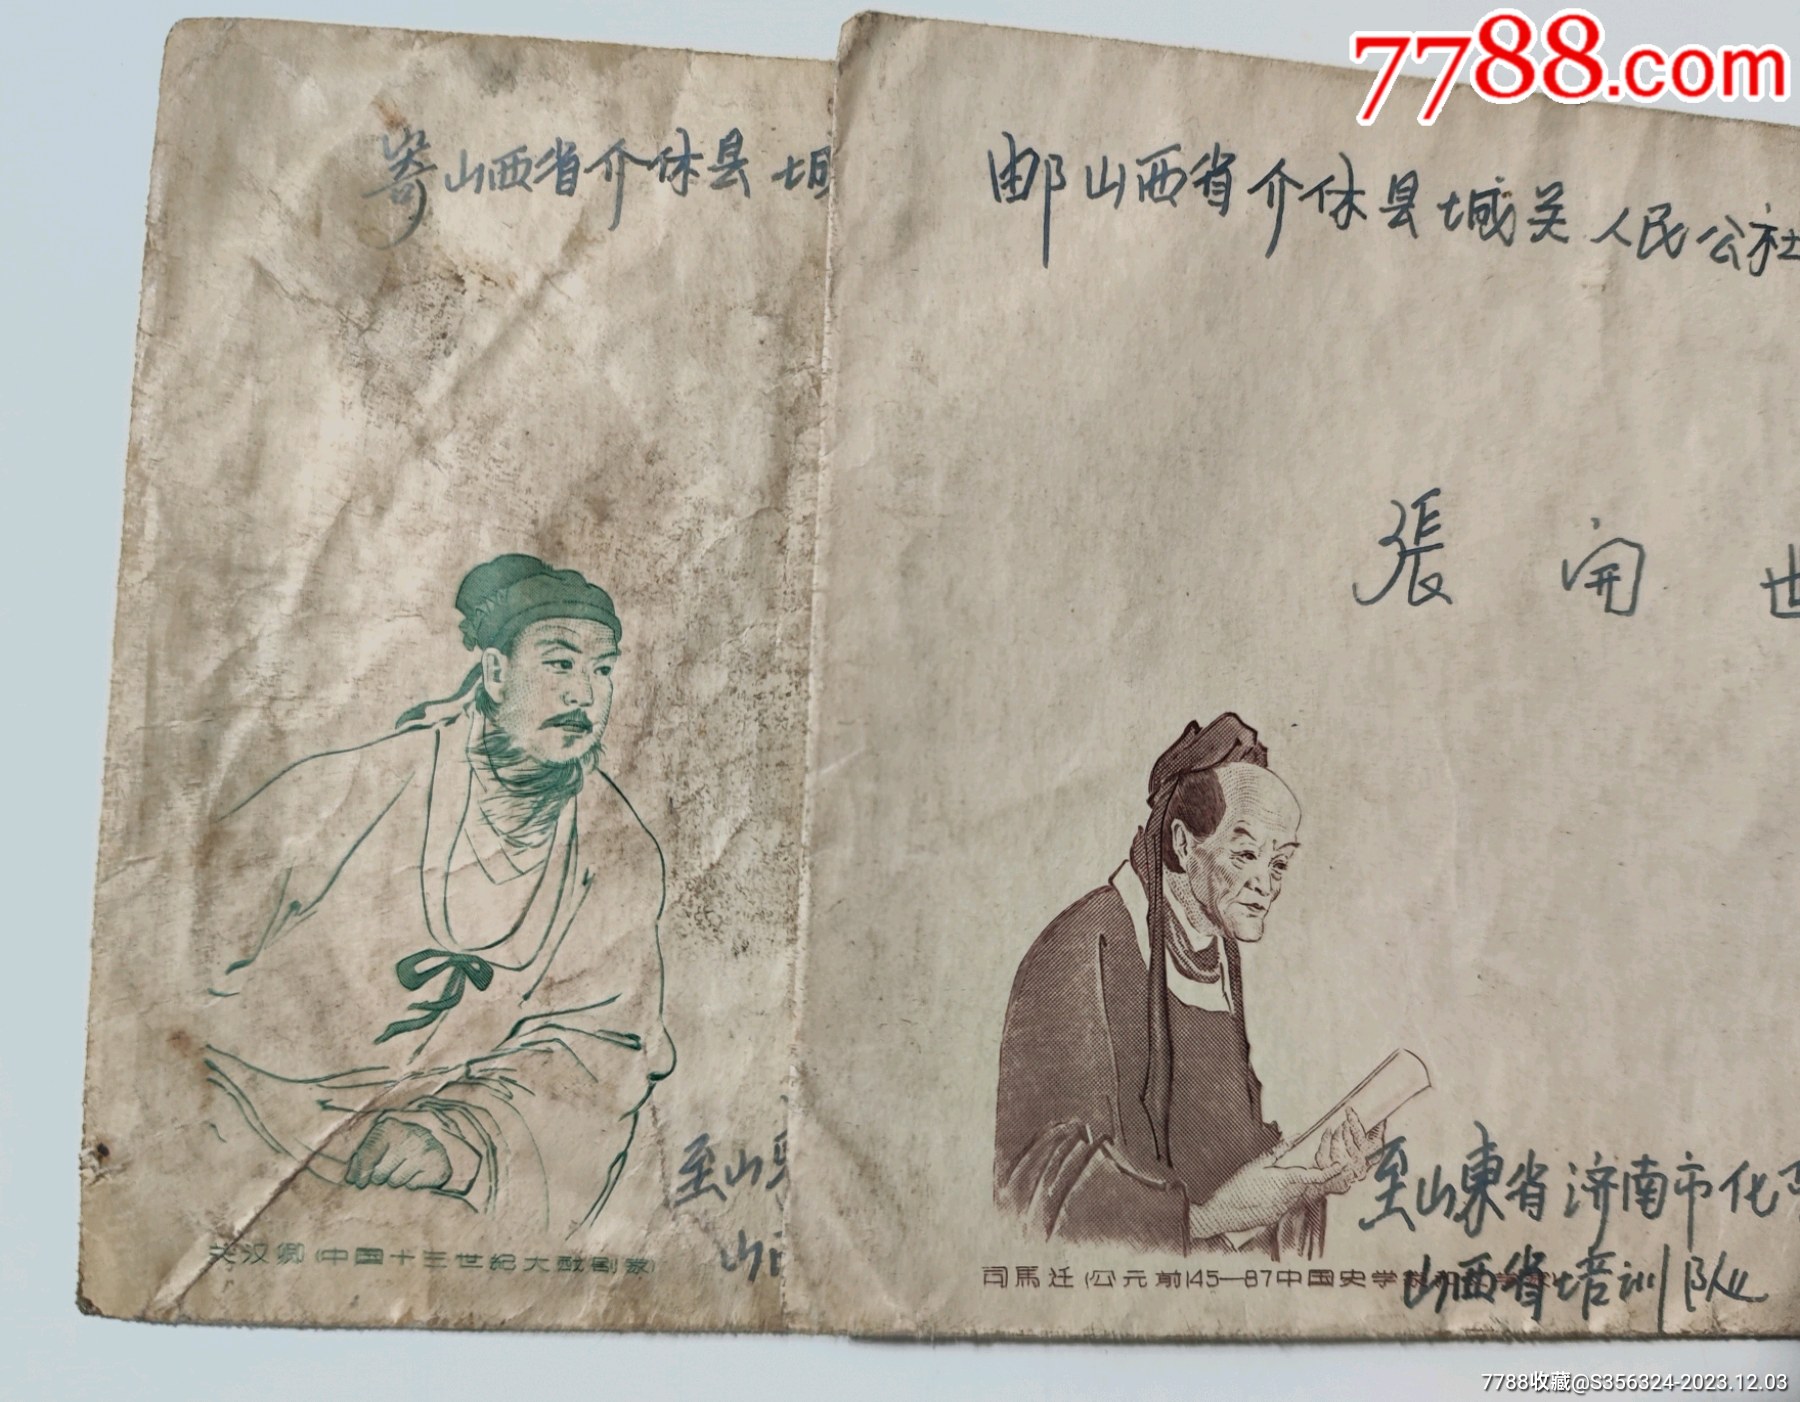 7788.com
寄山西省介休县城
邮山西省介休县城关人民公社
張 闬 世
至山東
山西
关汉卿(中国十三世纪大戏剧家)
至山東省济南市化
山西省培训队
司馬迁(公元前145—87中国史学家和文学家)
7788收藏@S356324-2023.12.03